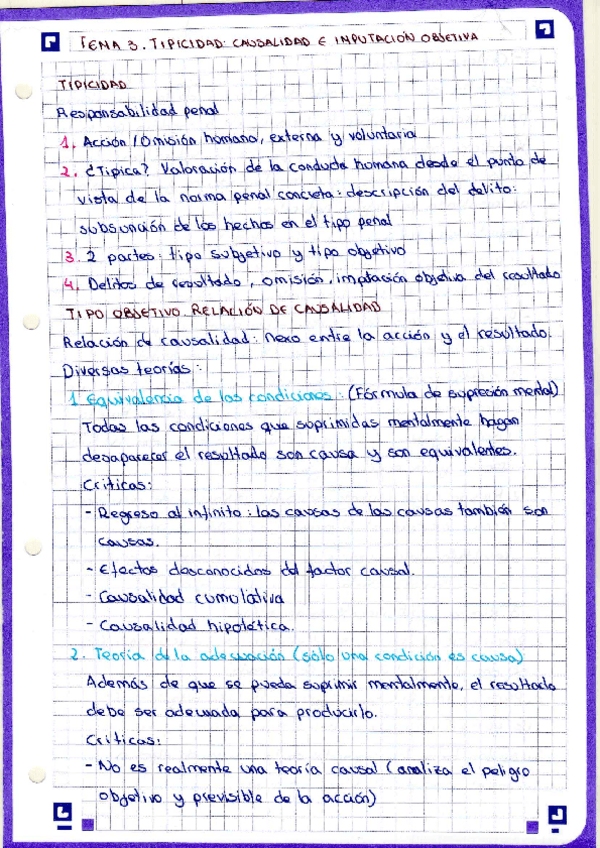 TEMA 3. TIPICIDAD: CAUSALIDAD E IMPUTACIÓN OBJETIVA
TIPICIDAD
Responsabilidad penal
1. Acción / Omisión humana, externa y voluntaria
2. ¿Típica? Valoración de la conducta humana desde el punto de
vista de la norma penal concreta: descripción del delito:
subsunción de los hechos en el tipo penal
3. 2 partes: tipo subjetivo y tipo objetivo
4. Delitos de resultado, omisión, imptación objetiva del resultado
TIPO OBJETIVO. RELACIÓN DE CAUSALIDAD
Relación de causalidad: nexo entre la acción y el resultado.
Diversas teorías:
1. Equivalencia de las condiciones: (Fórmula de supreción mental)
Todas las condiciones que suprimidas mentalmente hagan
desaparecer el resultado son causa y son equivalentes.
Críticas:
- Regreso al infinito: las causas de las causas también son
causas.
- Efectos desconocidos del factor causal.
- Causalidad cumulativa
- Causalidad hipotética.
2. Teoría de la adecuación (sólo una condición es causa)
Además de que se pueda suprimir mentalmente, el resultado
debe ser adecuada para producirlo.
Críticas:
- No es realmente una teoría causal (analiza el peligro
objetivo y previsible de la acción)